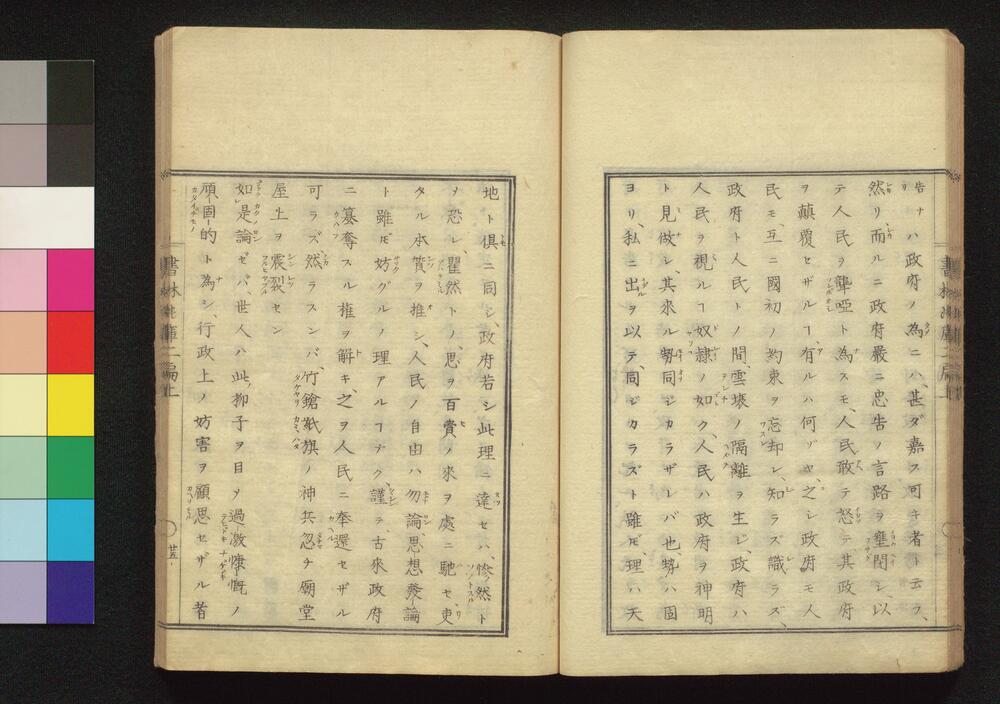 告ナハ政府ノ為ニハ、甚ダ嘉ス可キ者ト云フ、
然リ、而ルニ政府嚴ニ忠告ノ言路ヲ壅閉シ、以
テ人民ヲ聾啞ト為スモ、人民敢テ怒テ其政府
ヲ顛覆セザルヿ有ルハ何ゾヤ、之レ政府モ人
民モ、互ニ國初ノ約束ヲ忘却シ、知ラズ識ラズ、
政府ト人民トノ間、雲壌ノ隔離ヲ生ジ、政府ハ
人民ヲ視ルヿ奴隷ノ如ク人民ハ政府ヲ神明
ト見做シ、其來ル勢同ジカラザレバ也、勢ハ固
ヨリ、私ニ出ヲ以テ、同ジカラズト雖モ、理ハ天
地ト倶ニ同シ、政府若シ此理ニ達セハ、惨然ト
ヲ恐レ、瞿然トノ、思ヲ百費ノ來ヲ處ニ馳セ、吏
タル本質ヲ推シ、人民ノ自由ハ勿論、思想發論
ト雖モ妨グルノ理アルヿナク、謹テ、古來政府
ニ簒奪スル権ヲ解キ、之ヲ人民ニ奉還セザル
可ラズ然ラスンバ、竹鎗紙旗ノ神兵忽チ廟堂
屋上ヲ震裂セン
如是論ゼバ、世人ハ此ノ柳子ヲ目メ過激慷慨ノ
頑固的ト為シ、行政上ノ妨害ヲ顧思セザル者
廿五